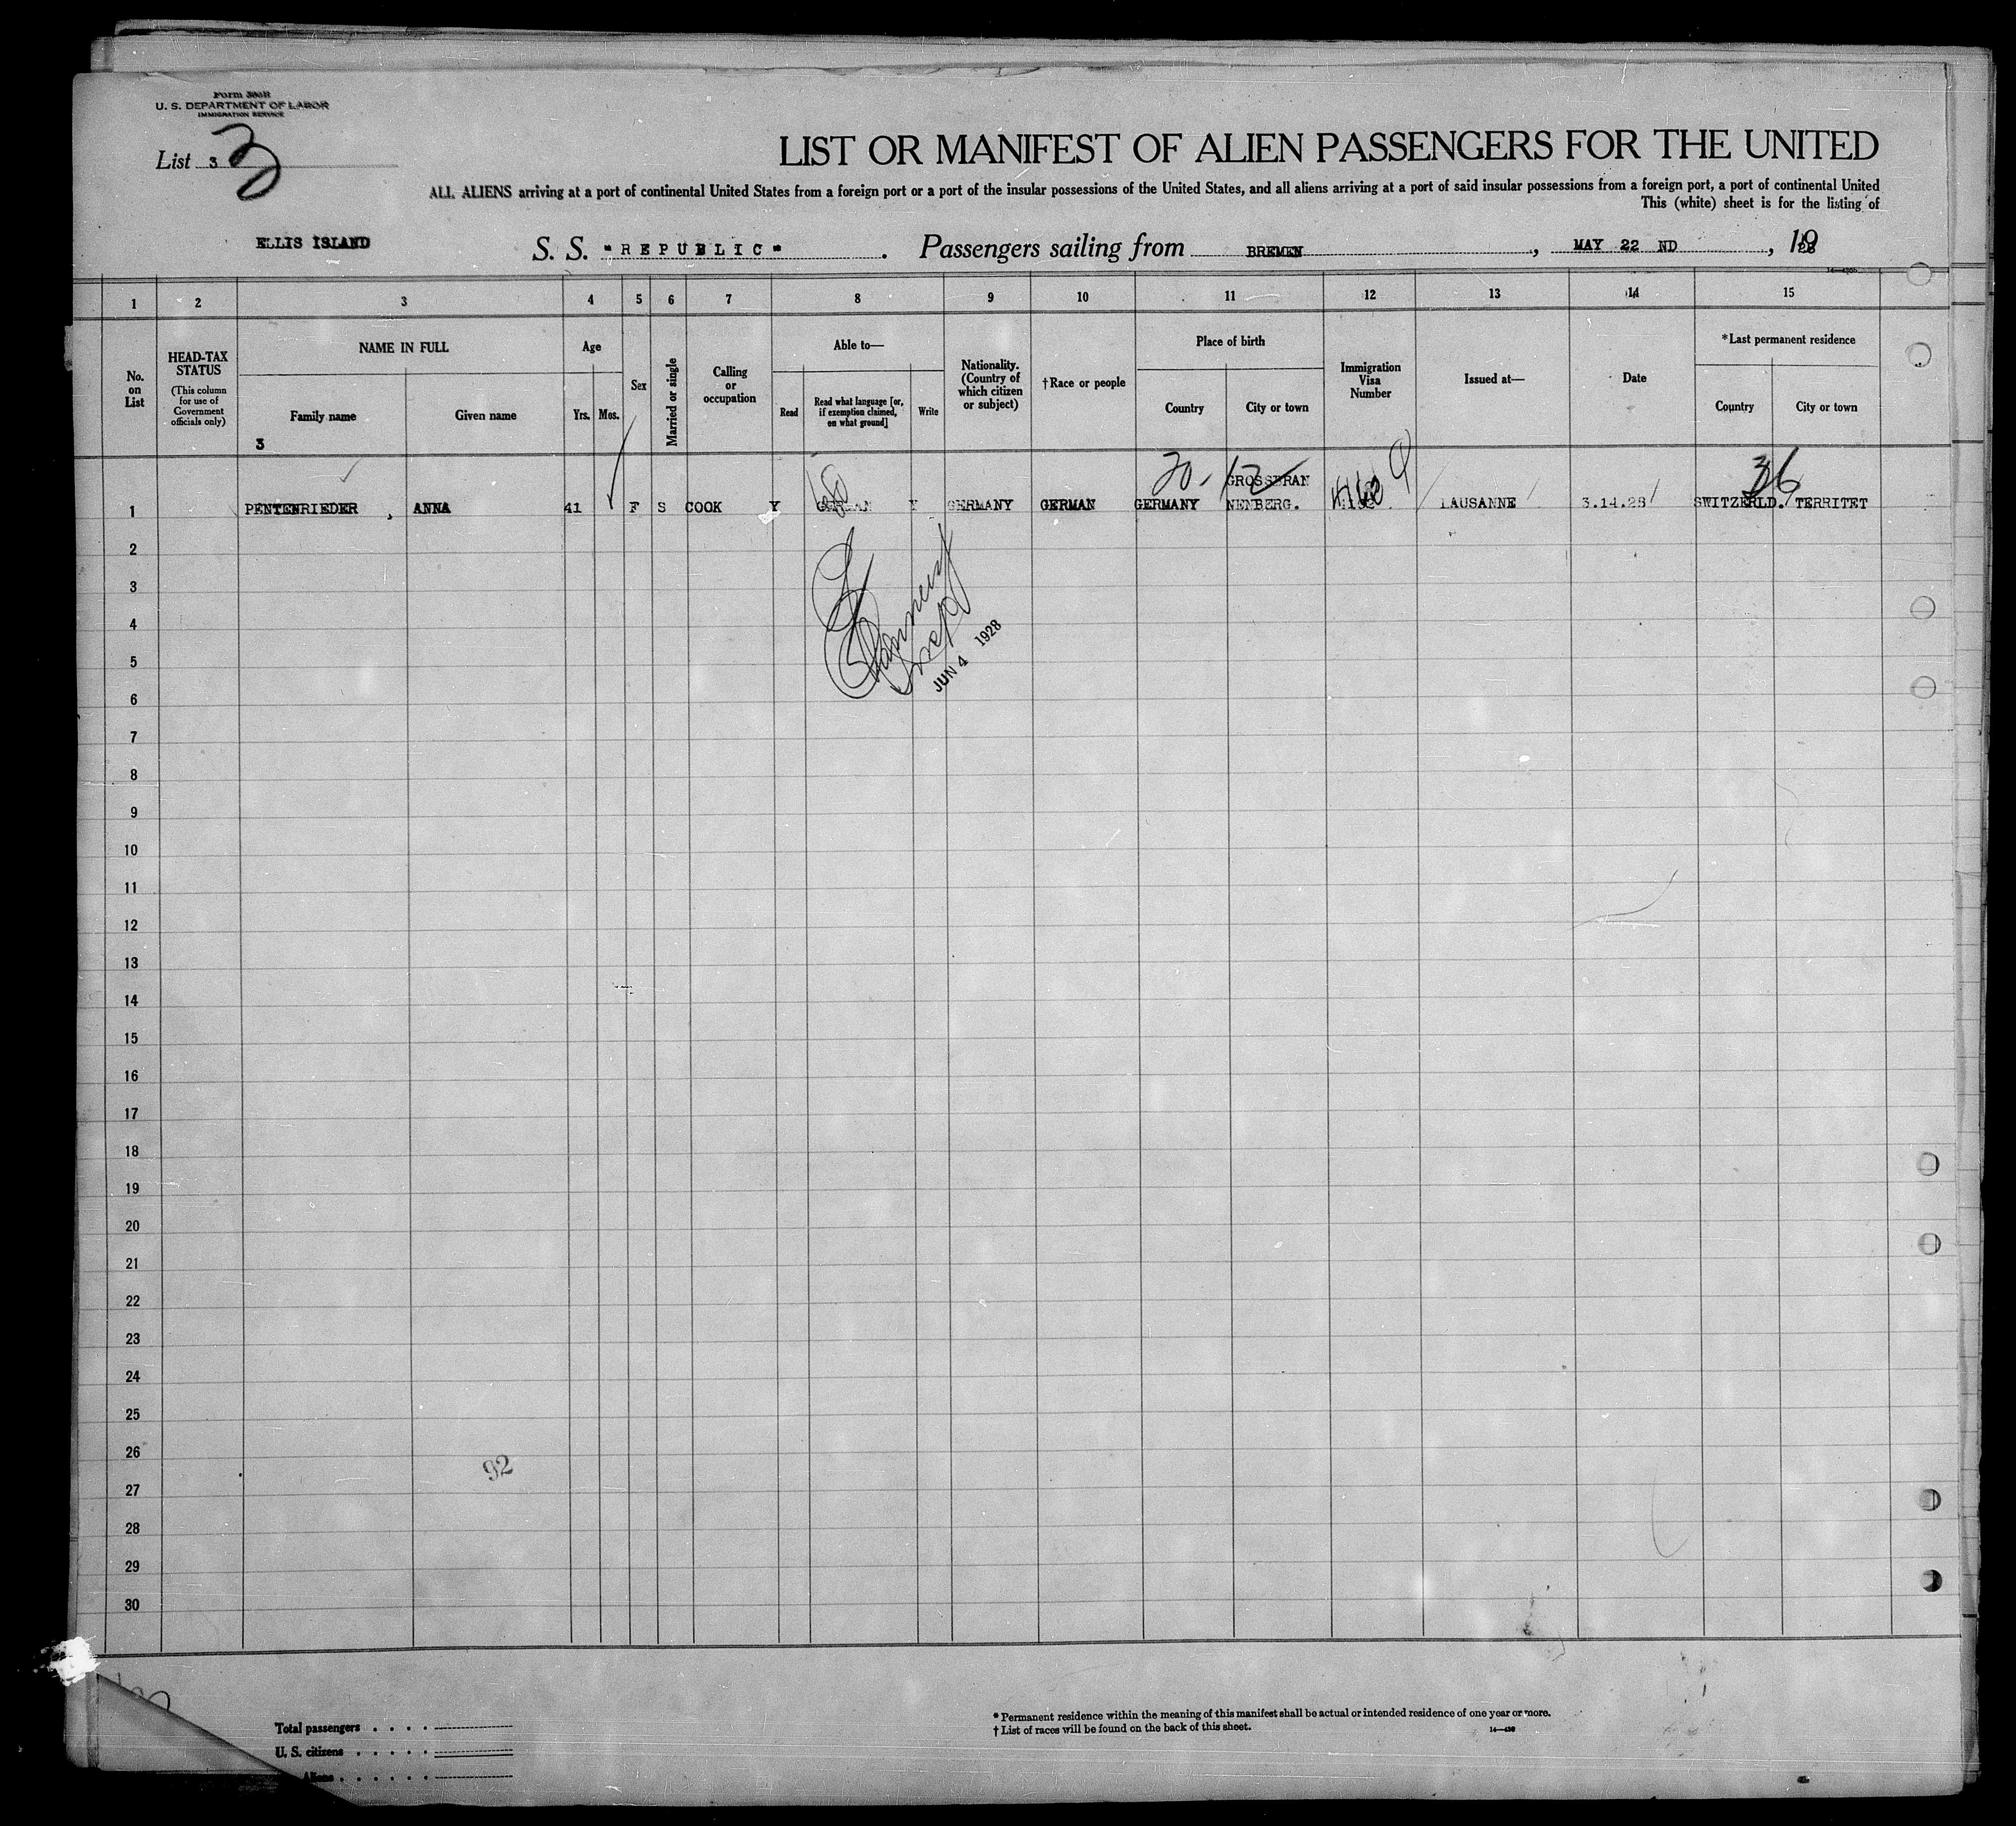 Form 500B
U. S. DEPARTMENT OF LABOR
IMMIGRATION SERVICE
List 3 3
LIST OR MANIFEST OF ALIEN PASSENGERS FOR THE UNITED
ALL ALIENS arriving at a port of continental United States from a foreign port or a port of the insular possessions of the United States, and all aliens arriving at a port of said insular possessions from a foreign port, a port of continental United
This (white) sheet is for the listing of
ELLIS ISLAND S. S. "REPUBLIC". Passengers sailing from BREMEN, MAY 22 ND, 1928
1 2 3 4 5 6 7 8 9 10 11 12 13 14 15
No. on List
HEAD-TAX STATUS
(This column for use of Government officials only)
NAME IN FULL
Family name
Given name
3
Age
Yrs. Mos.
Sex
Married or single
Calling or occupation
Able to—
Read
Read what language [or, if exemption claimed, on what ground]
Write
Nationality. (Country of which citizen or subject)
†Race or people
Place of birth
Country
City or town
Immigration Visa Number
Issued at—
Date
*Last permanent residence
Country
City or town
20-12 36
GROSSBRAN
1 PENTENRIEDER, ANNA 41 F S COOK Y GERMAN Y GERMANY GERMAN GERMANY NENBERG. LAUSANNE 3.14.28 SWITZERLD. TERRITET
2
3
4
5
JUN 4 1928
6
7
8
9
10
11
12
13
14
15
16
17
18
19
20
21
22
23
24
25
26
92
27
28
29
30
Total passengers . . . .
U. S. citizens . . . . .
Aliens . . . . . .
* Permanent residence within the meaning of this manifest shall be actual or intended residence of one year or more.
† List of races will be found on the back of this sheet.